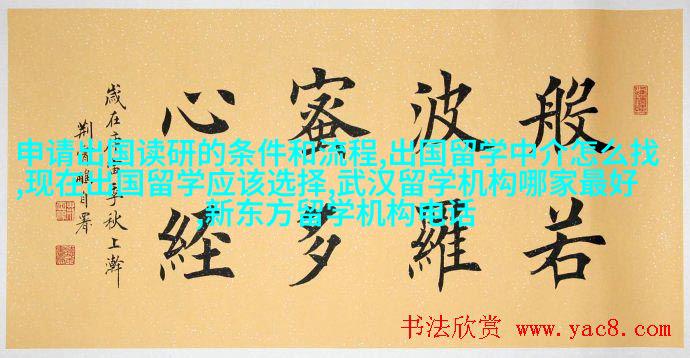 般若
波羅
蜜多
心経
歲在庚寅季秋上澣
荆霄鵬自署
申请出国读研的条件和流程,出国留学中介怎么找
,现在出国留学应该选择,武汉留学机构哪家最好
,新东方留学机构电话
书法欣赏 www.yac8.com